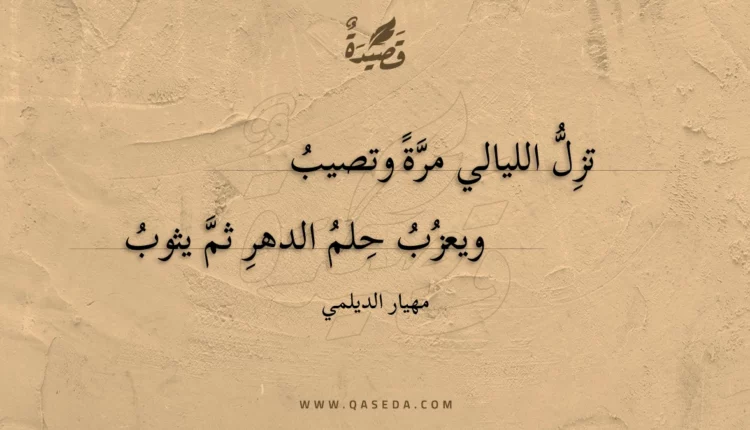 قَصِيْدَةٌ
تزِلُّ الليالي مرَّةً وتصيبُ
ويعزُبُ حِلمُ الدهرِ ثمَّ يثوبُ
مهيار الديلمي
WWW.QASEDA.COM